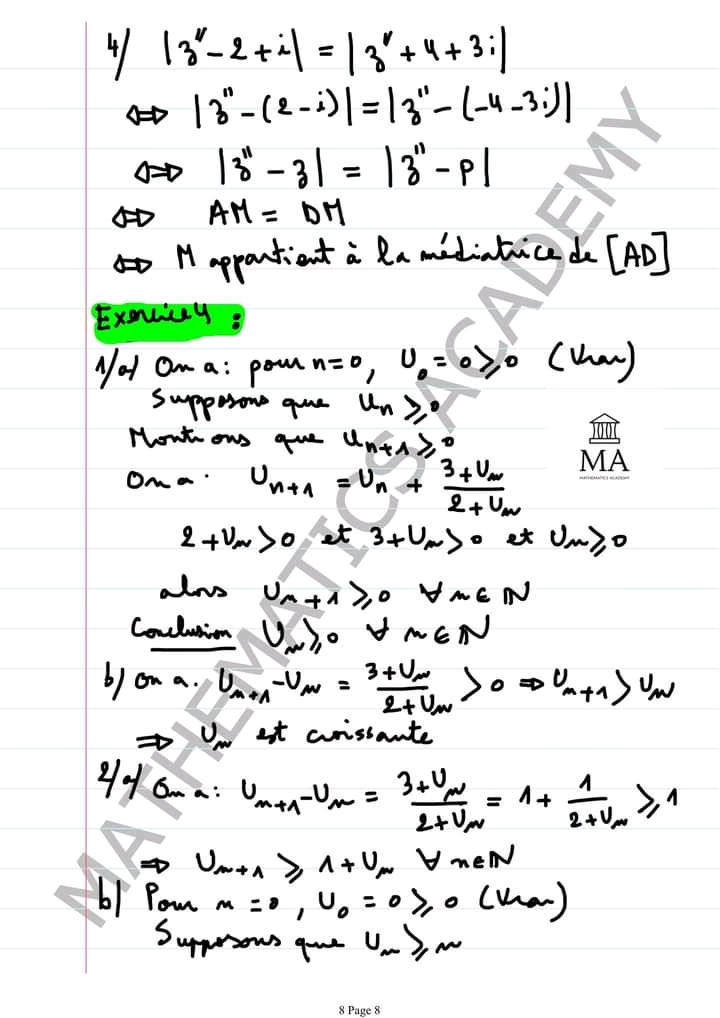 4/ |z'' - 2 + i| = |z'' + 4 + 3i|
⇔ |z'' - (2 - i)| = |z'' - (-4 - 3i)|
⇔ |z'' - z| = |z'' - p|
⇔ AM = DM
⇔ M appartient à la médiatrice de [AD]
Exercice 4 :
1/a/ On a : pour n = 0, U₀ = 0 ⩾ 0 (Vrai)
Supposons que Uₙ ⩾ 0
Montrons que Uₙ₊₁ ⩾ 0
On a : Uₙ₊₁ = Uₙ + (3 + Uₙ)/(2 + Uₙ)
MA
MATHEMATICS ACADEMY
2 + Uₙ > 0 et 3 + Uₙ > 0 et Uₙ ⩾ 0
alors Uₙ₊₁ ⩾ 0 ∀ n ∈ ℕ
Conclusion Uₙ ⩾ 0 ∀ n ∈ ℕ
b/ on a : Uₙ₊₁ - Uₙ = (3 + Uₙ)/(2 + Uₙ) > 0 ⇒ Uₙ₊₁ > Uₙ
⇒ Uₙ est croissante
2/a/ On a : Uₙ₊₁ - Uₙ = (3 + Uₙ)/(2 + Uₙ) = 1 + 1/(2 + Uₙ) ⩾ 1
⇒ Uₙ₊₁ ⩾ 1 + Uₙ ∀ n ∈ ℕ
b/ Pour n = 0, U₀ = 0 ⩾ 0 (Vrai)
Supposons que Uₙ ⩾ n
MATHEMATICS ACADEMY
8 Page 8